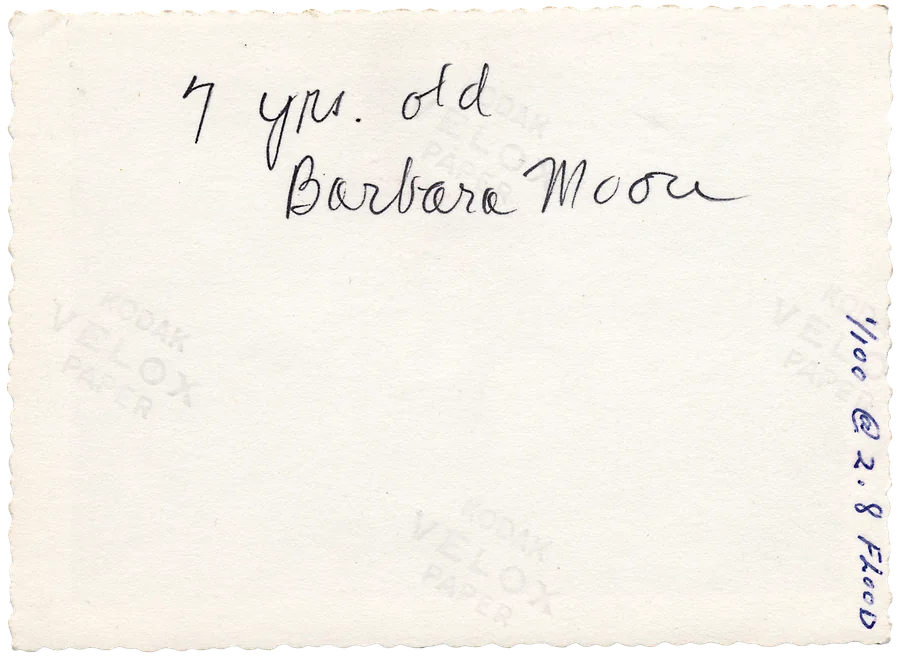 7 yrs. old
Barbara Moon
1/100 @ 2.8 FLOOD
KODAK
VELOX
PAPER
KODAK
VELOX
PAPER
KODAK
VELOX
PAPER
KODAK
VELOX
PAPER